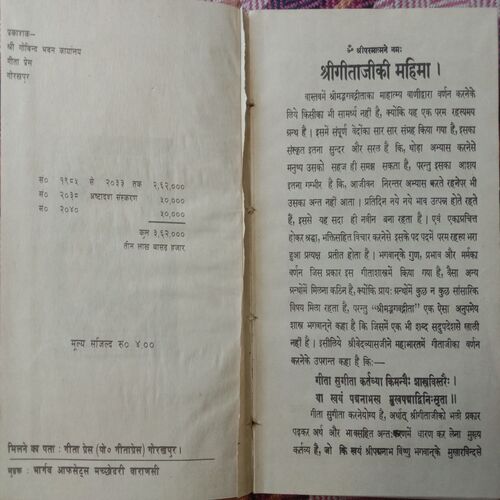 प्रकाशक—
श्री गोविन्द भवन कार्यालय
गीता प्रेस
गोरखपुर
सं० १९८५ से २०३३ तक २,६२,०००
सं० २०३८ अष्टादश संस्करण ५०,०००
सं० २०४० ५०,०००
कुल ३,६२,०००
तीन लाख बासठ हजार
मूल्य सजिल्द रु० ४.००
मिलने का पता : गीता प्रेस (पो० गीताप्रेस) गोरखपुर।
मुद्रक : भार्गव आफसेट्स मच्छोदरी वाराणसी
ॐ श्रीपरमात्मने नमः
श्रीगीताजीकी महिमा।
वास्तवमें श्रीमद्भगवद्गीताका माहात्म्य वाणीद्वारा वर्णन करनेके
लिये किसीका भी सामर्थ्य नहीं है, क्योंकि यह एक परम रहस्यमय
ग्रन्थ है। इसमें संपूर्ण वेदोंका सार सार संग्रह किया गया है, इसका
संस्कृत इतना सुन्दर और सरल है कि, थोड़ा अभ्यास करनेसे
मनुष्य उसको सहज ही समझ सकता है, परन्तु इसका आशय
इतना गम्भीर है कि, आजीवन निरन्तर अभ्यास करते रहनेपर भी
उसका अन्त नहीं आता। प्रतिदिन नये नये भाव उत्पन्न होते रहते
हैं, इससे यह सदा ही नवीन बना रहता है। एवं एकाग्रचित्त
होकर श्रद्धा, भक्तिसहित विचार करनेसे इसके पद पदमें परम रहस्य भरा
हुआ प्रत्यक्ष प्रतीत होता है। भगवान्के गुण, प्रभाव और मर्मका
वर्णन जिस प्रकार इस गीताशास्त्रमें किया गया है, वैसा अन्य
ग्रन्थोंमें मिलना कठिन है, क्योंकि प्रायः ग्रन्थोंमें कुछ न कुछ सांसारिक
विषय मिला रहता है, परन्तु “श्रीमद्भगवद्गीता” एक ऐसा अनुपमेय
शास्त्र भगवान्ने कहा है कि जिसमें एक भी शब्द सदुपदेशसे खाली
नहीं है। इसीलिये श्रीवेदव्यासजीने महाभारतमें गीताजीका वर्णन
करनेके उपरान्त कहा है कि:—
गीता सुगीता कर्तव्या किमन्यैः शास्त्रविस्तरैः।
या स्वयं पद्मनाभस्य मुखपद्माद्विनिःसृता॥
गीता सुगीता करनेयोग्य है, अर्थात् श्रीगीताजीको भली प्रकार
पढ़कर अर्थ और भावसहित अन्तःकरणमें धारण कर लेना मुख्य
कर्तव्य है, जो कि स्वयं श्रीपद्मनाभ विष्णु भगवान्के मुखारविन्दसे